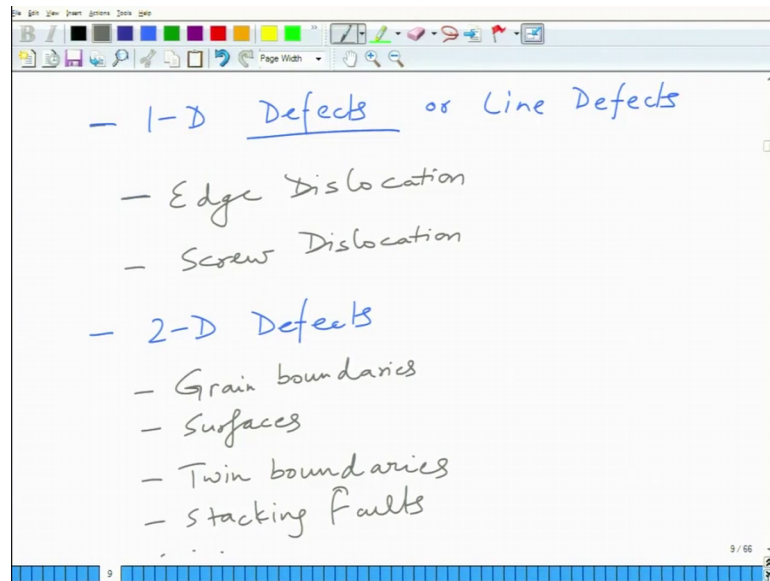 File Edit View Insert Actions Tools Help
B I
Page Width
- 1-D Defects or Line Defects
- Edge Dislocation
- Screw Dislocation
- 2-D Defects
- Grain boundaries
- Surfaces
- Twin boundaries
- Stacking Faults
9 / 66
9